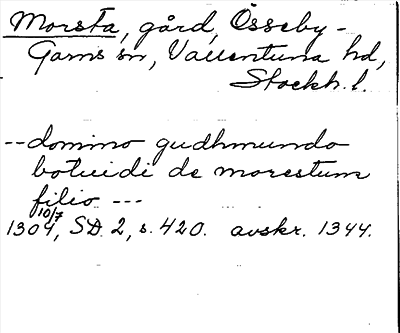 Morsta, gård, Össeby-
Garns sn, Vallentuna hd,
Stockh. l.
-- domino gudhmundo
botuidi de morestum
filio ---
10/7
1304, SD. 2, s. 420. avskr. 1344.